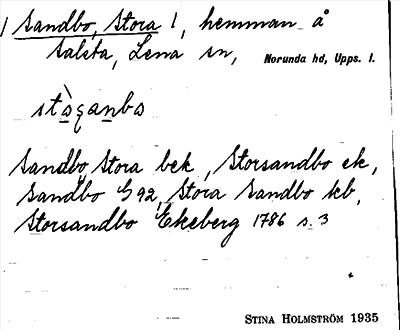 Sandbo, Stora 1, hemman å
Salsta, Lena sn, Norunda hd, Upps. l.
Sandbo, Stora bek, Storsandbo ek,
Sandbo G 92, Stora Sandbo kb,
Storsandbo Ekeberg 1786 s. 3
STINA HOLMSTRÖM 1935